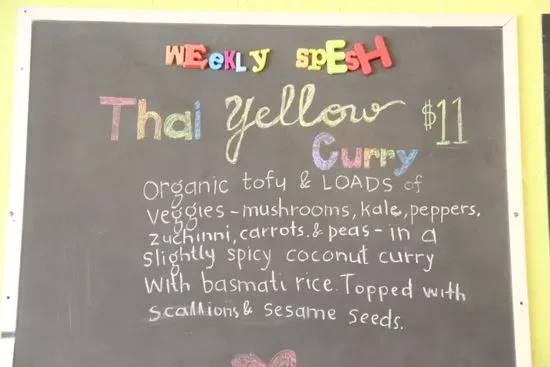 WEEKLY SPESH
Thai Yellow $11
Curry
Organic tofu & LOADS of
veggies - mushrooms, kale, peppers,
zuchinni, carrots, & peas - in a
slightly spicy coconut curry
with basmati rice. Topped with
scallions & sesame seeds.